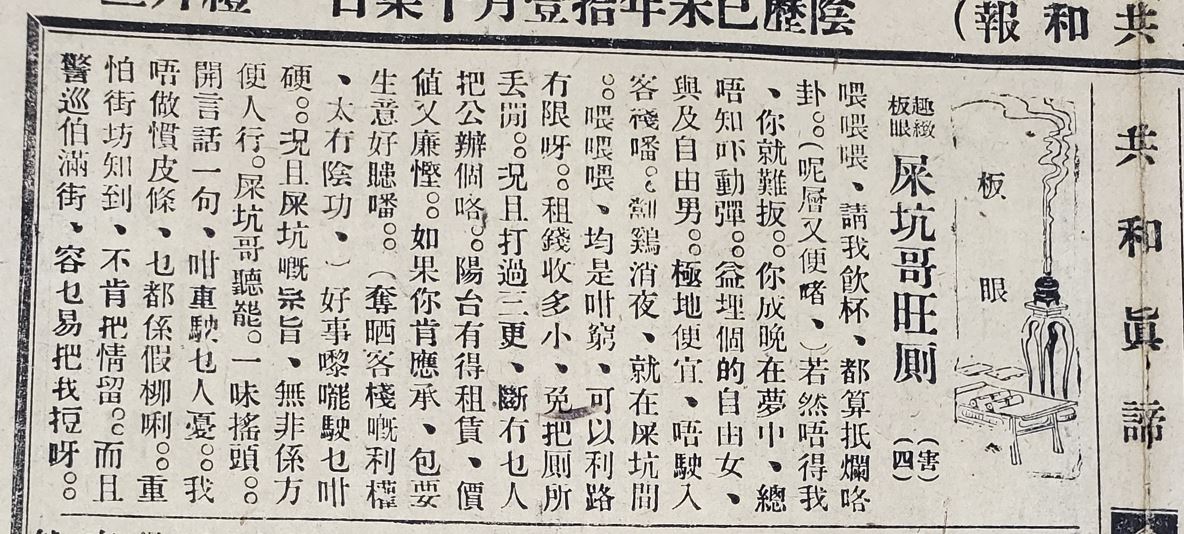 共和報）
陰歷己未年拾壹月十柒日
共和眞諦
板眼
趣緻板眼
屎坑哥旺厠
（害）
（四）
喂喂喂、請我飲杯、都算抵爛咯
卦。。（呢層又使啫、）若然唔得我
、你就難扳。。你成晚在夢中、總
唔知吓動彈。。益埋個的自由女、
與及自由男。。極地便宜、唔駛入
客棧噃。。劏鷄消夜、就在屎坑間
。。喂喂喂、均是咁窮、可以利路
冇限呀。。租錢收多小、免把厠所
丟閒。。况且打過三更、斷冇乜人
把公辦個咯。。陽台有得租賃、價
值又廉慳。。如果你肯應承、包要
生意好噃。。（奪晒客棧嘅利權
、太冇陰功、）好事嚟囉駛乜咁
硬。。况且屎坑嘅宗旨、無非係方
便人行。屎坑哥聽罷。一味搖頭。。
開言話一句、咁車駛乜人憂。。我
唔做慣皮條、乜都係假柳唎。。重
怕街坊知到、不肯把情留。。而且
警巡伯滿街、容乜易把我挳呀。。